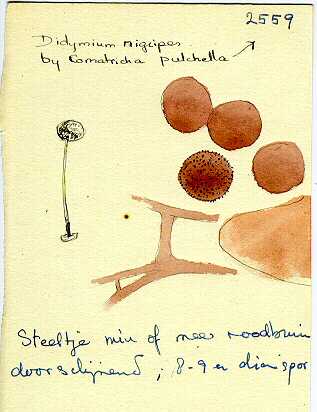 2559
Didymium nigripes
by Comatricha pulchella
Steeltje min of meer roodbruin
doorschijnend; 8-9 u diam spor